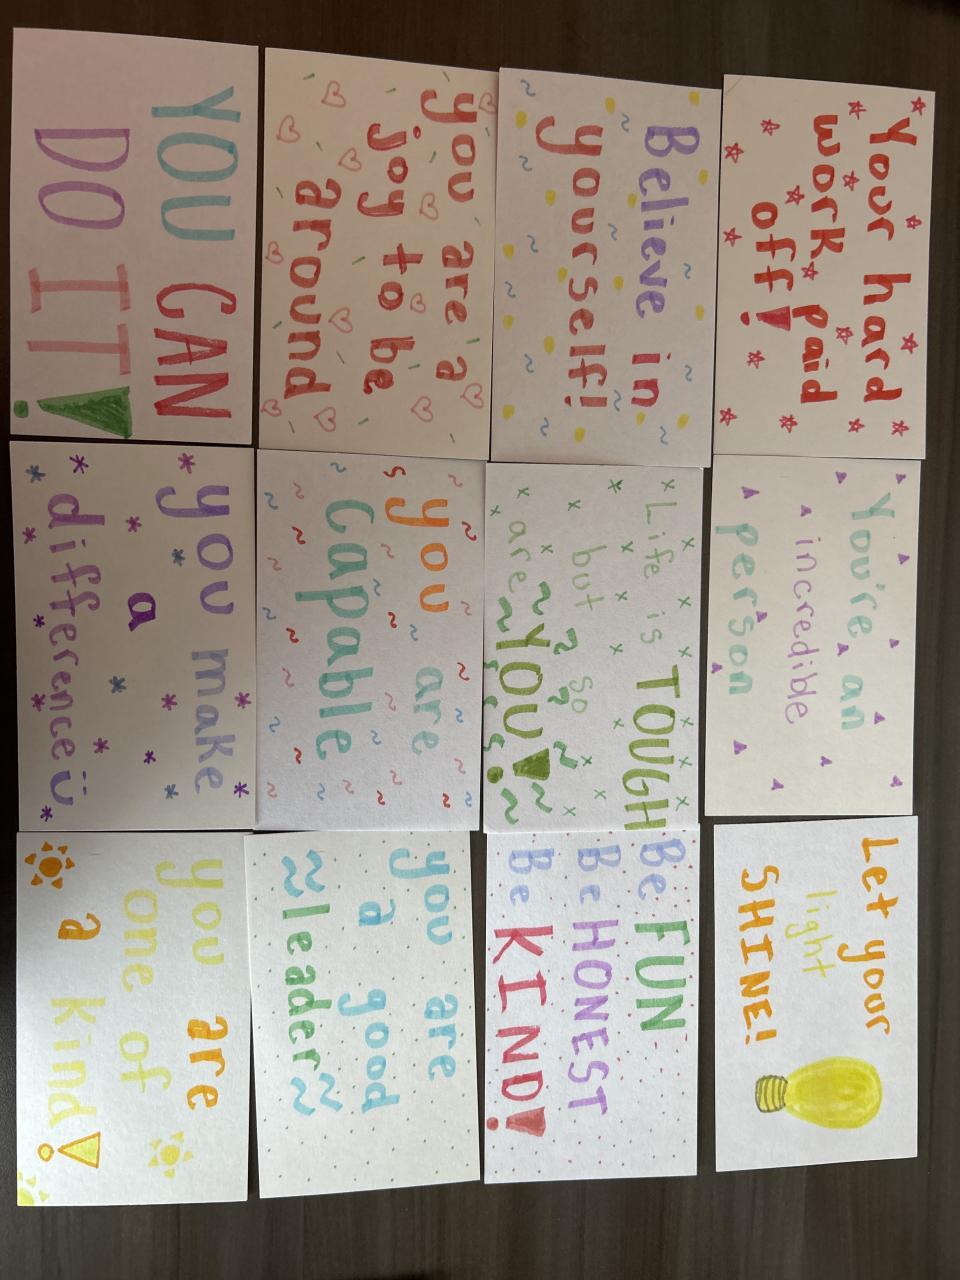 Your hard
work paid
off!
You're an
incredible
person
Let your
light
SHINE!
Believe in
yourself!
Life is TOUGH
but so
are YOU!
Be FUN
Be HONEST
Be KIND!
you are a
joy to be
around
you are
capable
you are
a good
leader
YOU CAN
DO IT!
you make
a
difference
you are
one of
a kind!